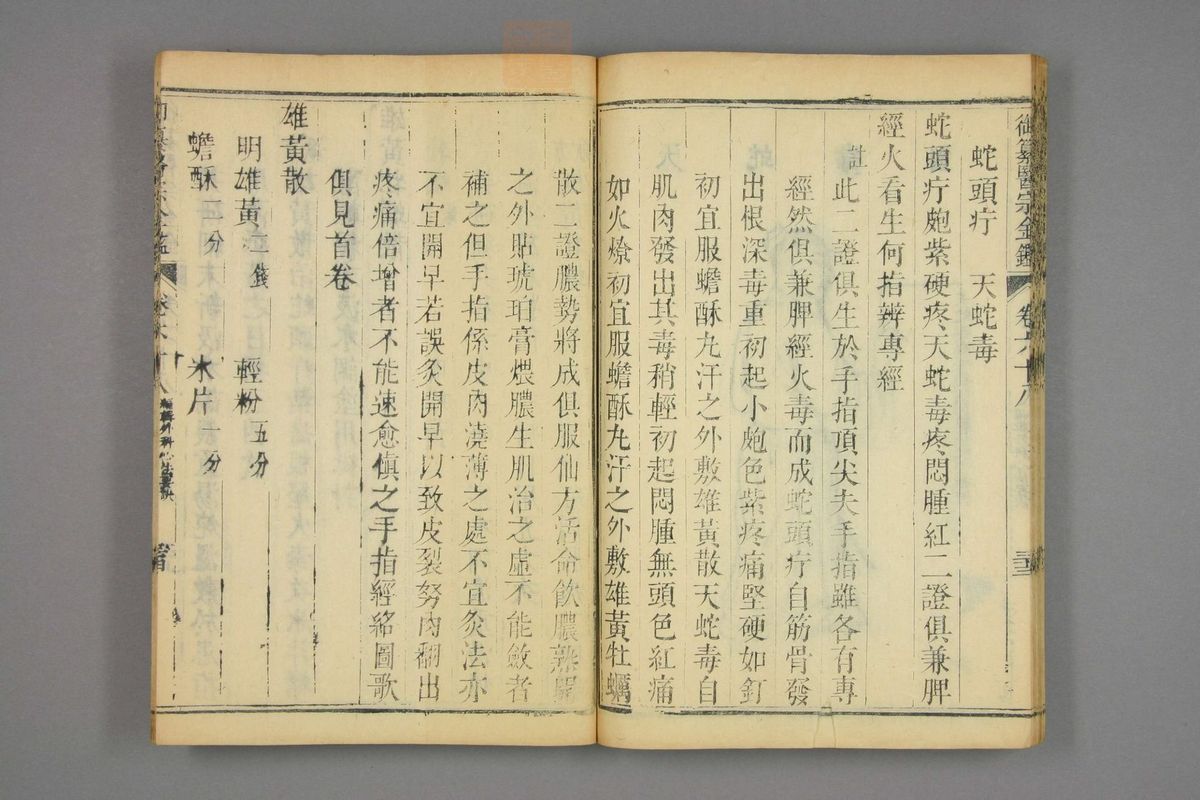 御纂醫宗金鑑 卷六十八
蛇頭疔 天蛇毒
蛇頭疔皰紫硬疼天蛇毒疼悶腫紅二證俱兼脾
經火看生何指辨專經
註此二證俱生於手指頂尖夫手指雖各有專
經然俱兼脾經火毒而成蛇頭疔自筋骨發
出根深毒重初起小皰色紫疼痛堅硬如釘
初宜服蟾酥丸汗之外敷雄黃散天蛇毒自
肌肉發出其毒稍輕初起悶腫無頭色紅痛
如火燎初宜服蟾酥丸汗之外敷雄黃牡蠣
散二證膿勢將成俱服仙方活命飲膿熟開
之外貼琥珀膏煨膿生肌治之虛不能斂者
補之但手指係皮肉澆薄之處不宜灸法亦
不宜開早若誤灸開早以致皮裂努肉翻出
疼痛倍增者不能速愈慎之手指經絡圖歌
俱見首卷
雄黃散
明雄黃二錢 輕粉五分
蟾酥二分 氷片一分